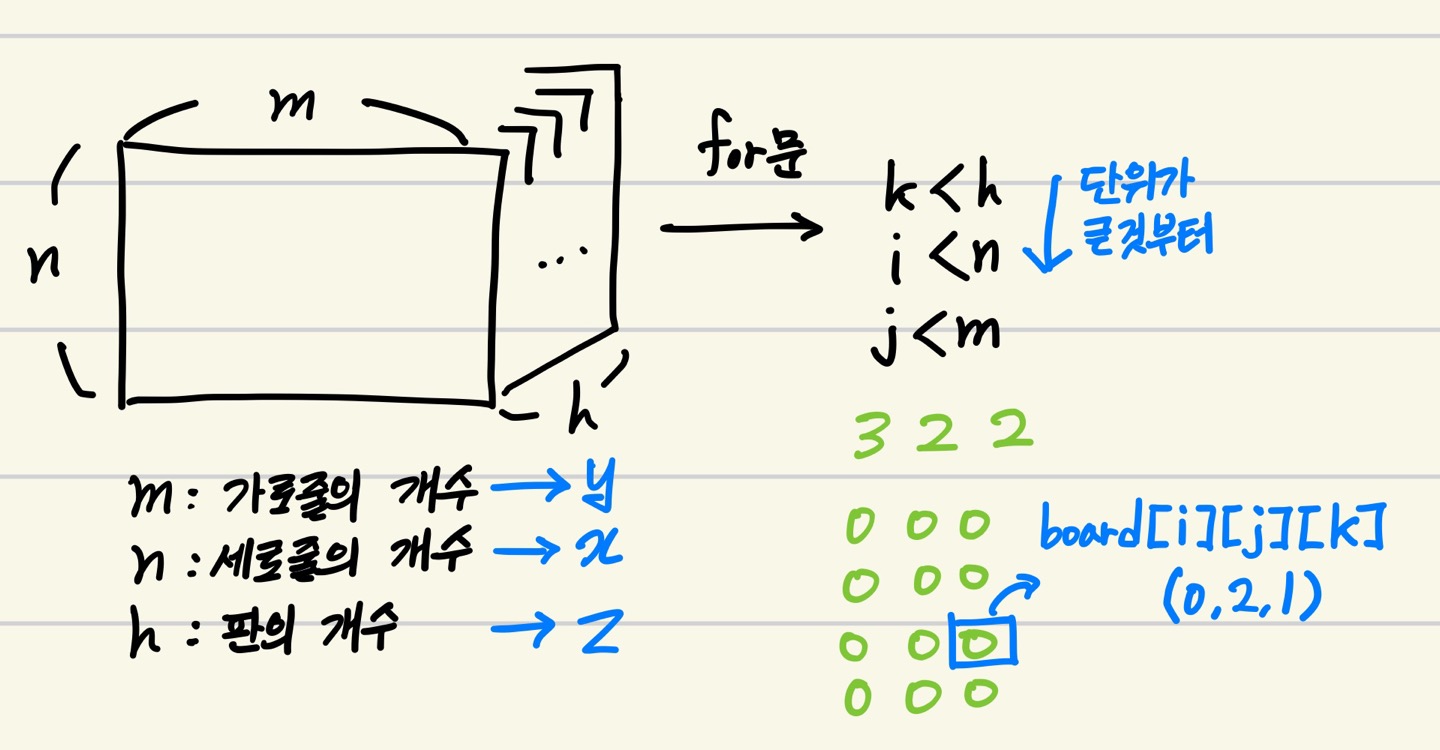 m
n
h
...
for문
k < h
i < n
j < m
단위가
큰것부터
m : 가로줄의 개수 → y
n : 세로줄의 개수 → x
h : 판의 개수 → z
3 2 2
0 0 0
0 0 0
0 0 0
0 0 0
board[i][j][k]
(0,2,1)